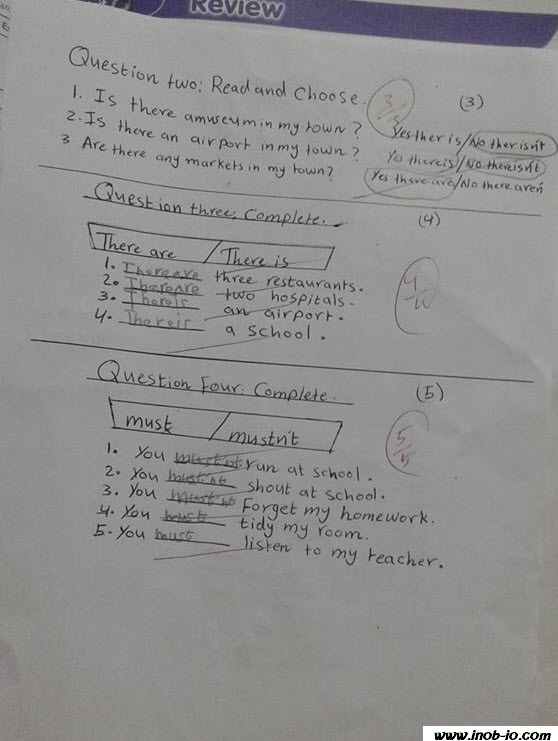 Review
Question two: Read and Choose. (3)
3/3
1. Is there amuseum in my town? Yes ther is/No ther isn't
2. Is there an airport in my town? Yes there is/No there isn't
3 Are there any markets in my town? Yes there are/No there aren
Question three: Complete. (4)
There are / There is
1. There are three restaurants.
2. There are two hospitals.
3. There is an airport.
4. There is a school.
4/4
Question Four: Complete. (5)
must / mustn't
5/5
1. You must nt run at school.
2. You must nt shout at school.
3. You must nt Forget my homework.
4. You must tidy my room.
5. You must listen to my teacher.
www.inob-io.com